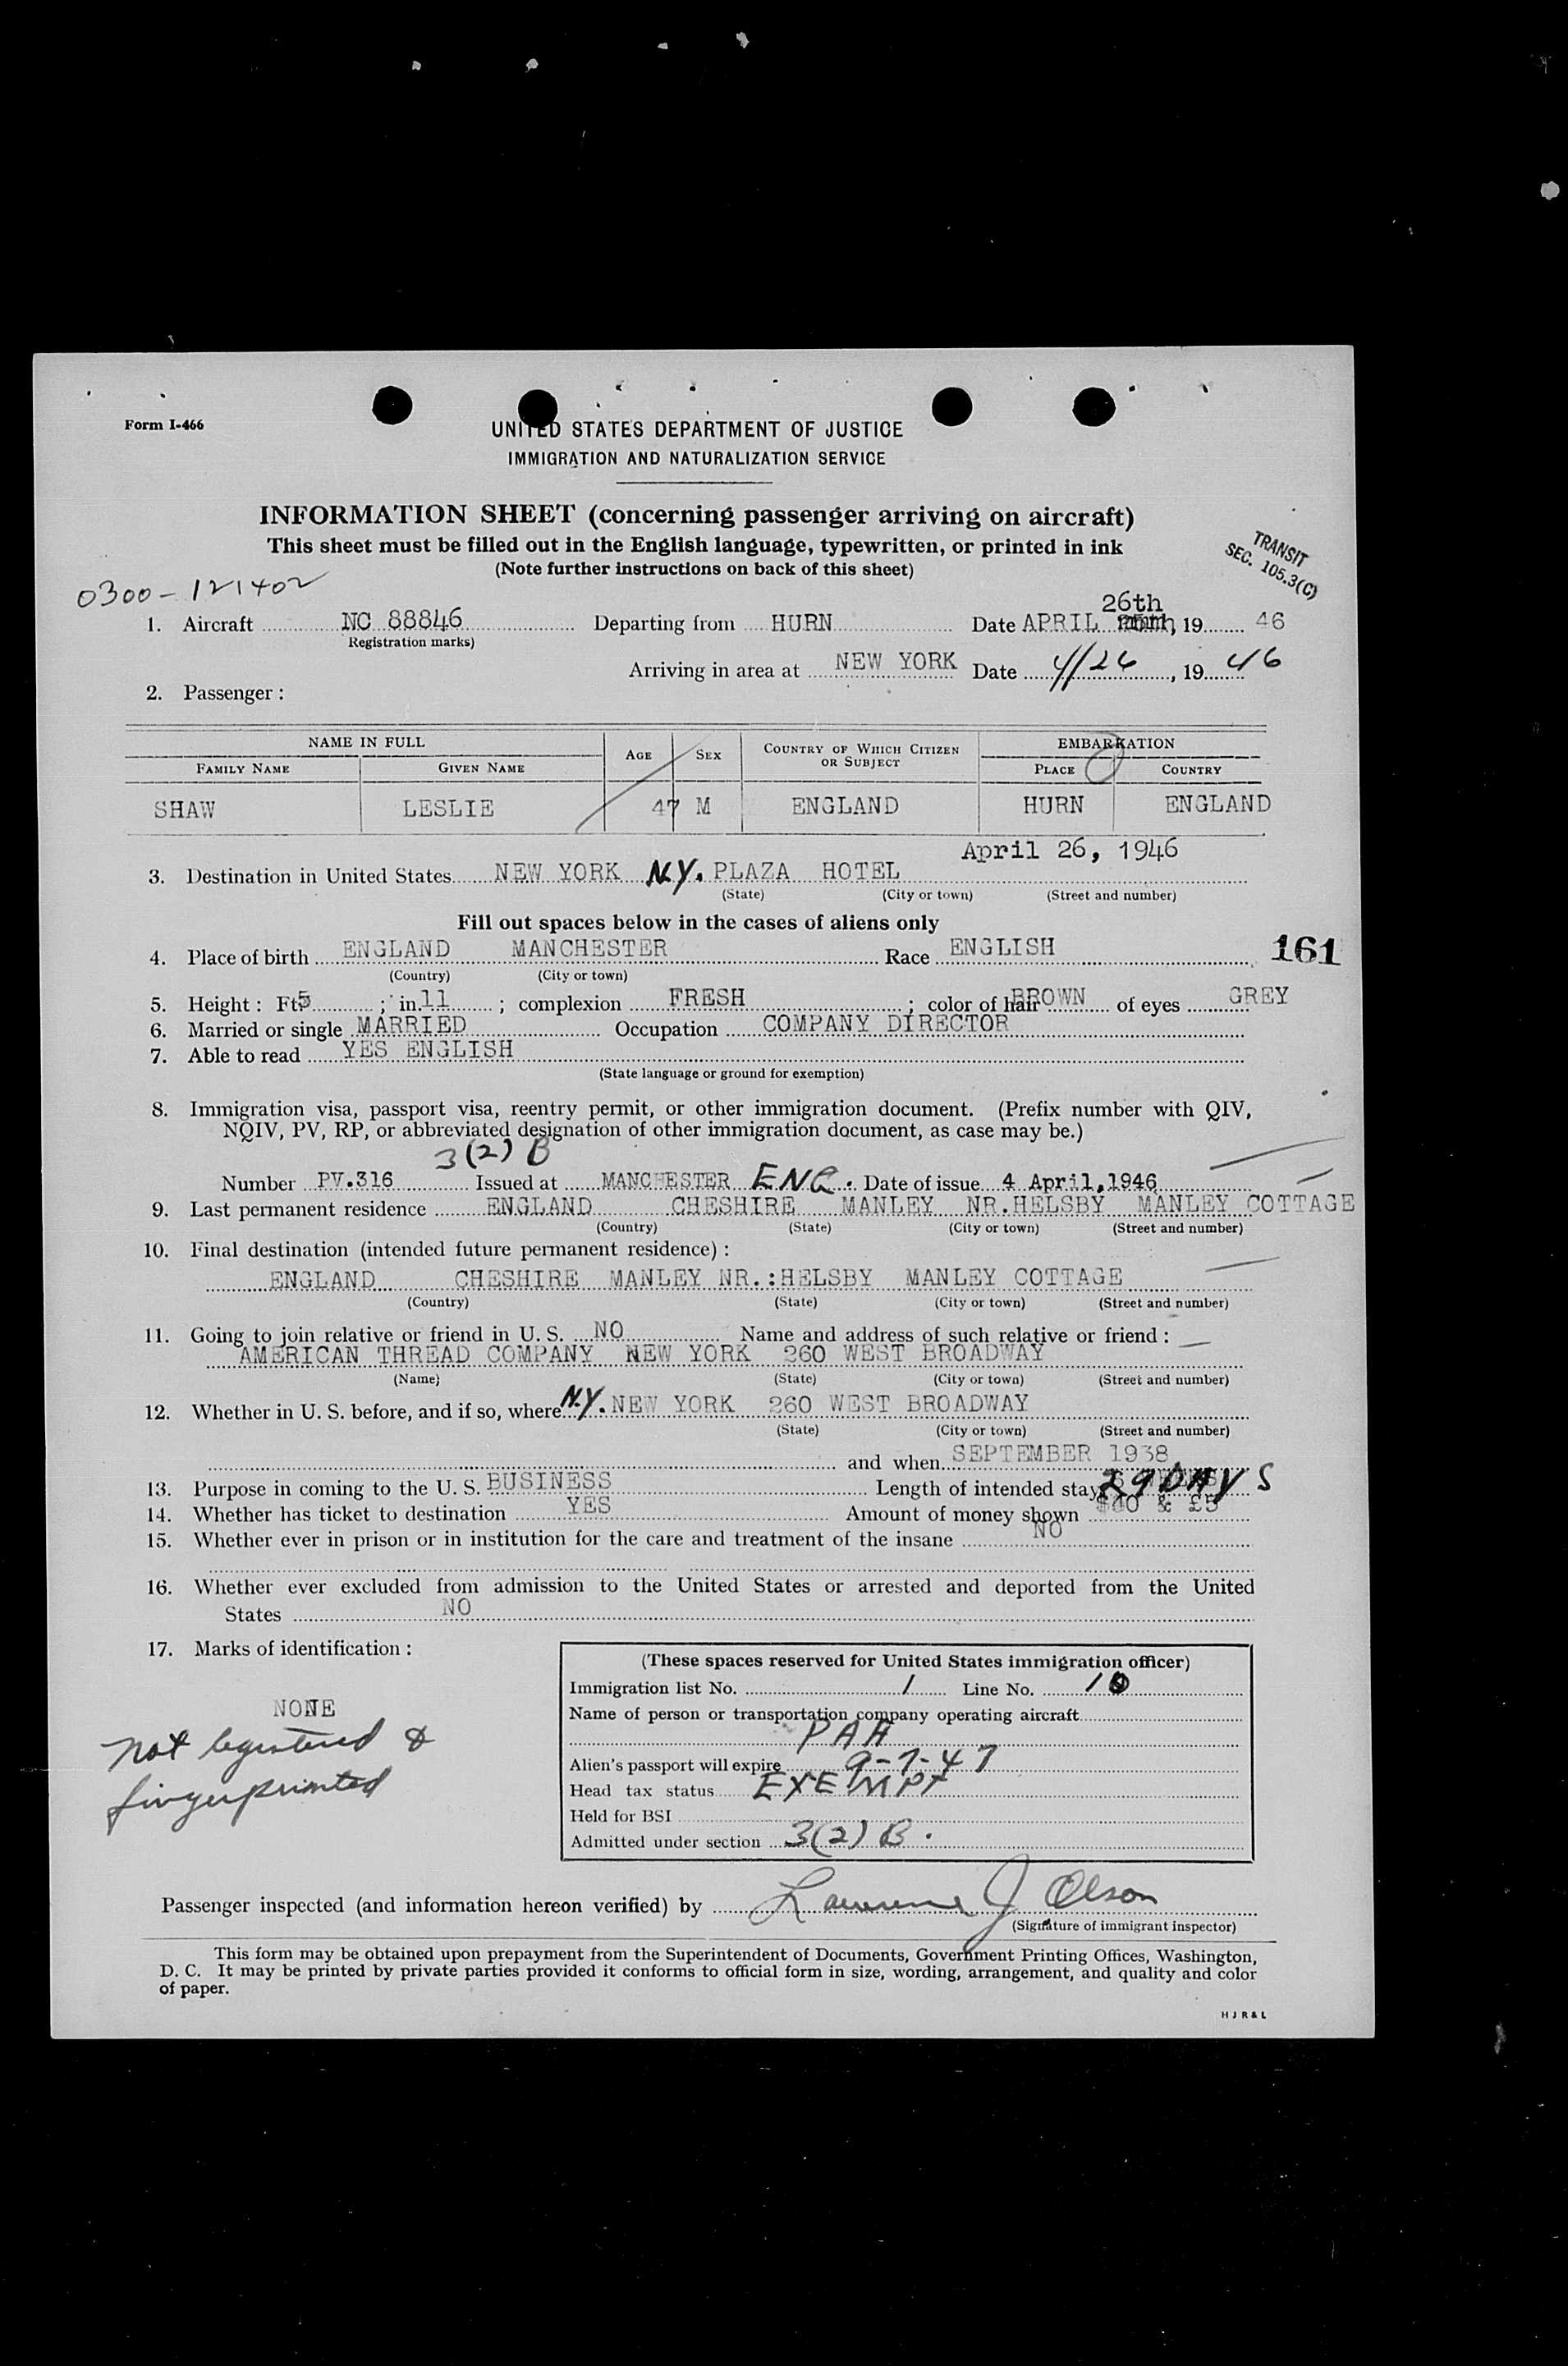 Form I-466
UNITED STATES DEPARTMENT OF JUSTICE
IMMIGRATION AND NATURALIZATION SERVICE
INFORMATION SHEET (concerning passenger arriving on aircraft)
This sheet must be filled out in the English language, typewritten, or printed in ink
(Note further instructions on back of this sheet)
TRANSIT
SEC. 105.3(C)
0300-121402
26th
1. Aircraft NC 88846 Departing from HURN Date APRIL , 19 46
(Registration marks)
Arriving in area at NEW YORK Date 4/26, 19 46
2. Passenger :
NAME IN FULL AGE SEX COUNTRY OF WHICH CITIZEN OR SUBJECT EMBARKATION
FAMILY NAME GIVEN NAME PLACE COUNTRY
SHAW LESLIE 47 M ENGLAND HURN ENGLAND
April 26, 1946
3. Destination in United States NEW YORK N.Y. PLAZA HOTEL
(State) (City or town) (Street and number)
Fill out spaces below in the cases of aliens only
4. Place of birth ENGLAND MANCHESTER Race ENGLISH 161
(Country) (City or town)
5. Height : Ft. 5 ; in. 11 ; complexion FRESH ; color of hair BROWN of eyes GREY
6. Married or single MARRIED Occupation COMPANY DIRECTOR
7. Able to read YES ENGLISH
(State language or ground for exemption)
8. Immigration visa, passport visa, reentry permit, or other immigration document. (Prefix number with QIV,
NQIV, PV, RP, or abbreviated designation of other immigration document, as case may be.)
3(2) B
Number PV.316 Issued at MANCHESTER ENG. Date of issue 4 April, 1946
9. Last permanent residence ENGLAND CHESHIRE MANLEY NR.HELSBY MANLEY COTTAGE
(Country) (State) (City or town) (Street and number)
10. Final destination (intended future permanent residence) :
ENGLAND CHESHIRE MANLEY NR.:HELSBY MANLEY COTTAGE
(Country) (State) (City or town) (Street and number)
11. Going to join relative or friend in U. S. NO Name and address of such relative or friend :
AMERICAN THREAD COMPANY NEW YORK 260 WEST BROADWAY
(Name) (State) (City or town) (Street and number)
12. Whether in U. S. before, and if so, where N.Y. NEW YORK 260 WEST BROADWAY
(State) (City or town) (Street and number)
and when SEPTEMBER 1938
13. Purpose in coming to the U. S. BUSINESS Length of intended stay 29 DAYS
14. Whether has ticket to destination YES Amount of money shown $40 & £5
15. Whether ever in prison or in institution for the care and treatment of the insane NO
16. Whether ever excluded from admission to the United States or arrested and deported from the United
States NO
17. Marks of identification :
NONE
Not registered &
fingerprinted
(These spaces reserved for United States immigration officer)
Immigration list No. 1 Line No. 10
Name of person or transportation company operating aircraft
PAA
Alien's passport will expire 9-7-47
Head tax status EXEMPT
Held for BSI
Admitted under section 3(2) B.
Passenger inspected (and information hereon verified) by Lawrence J Olson
(Signature of immigrant inspector)
This form may be obtained upon prepayment from the Superintendent of Documents, Government Printing Offices, Washington,
D. C. It may be printed by private parties provided it conforms to official form in size, wording, arrangement, and quality and color
of paper.
H J R & L